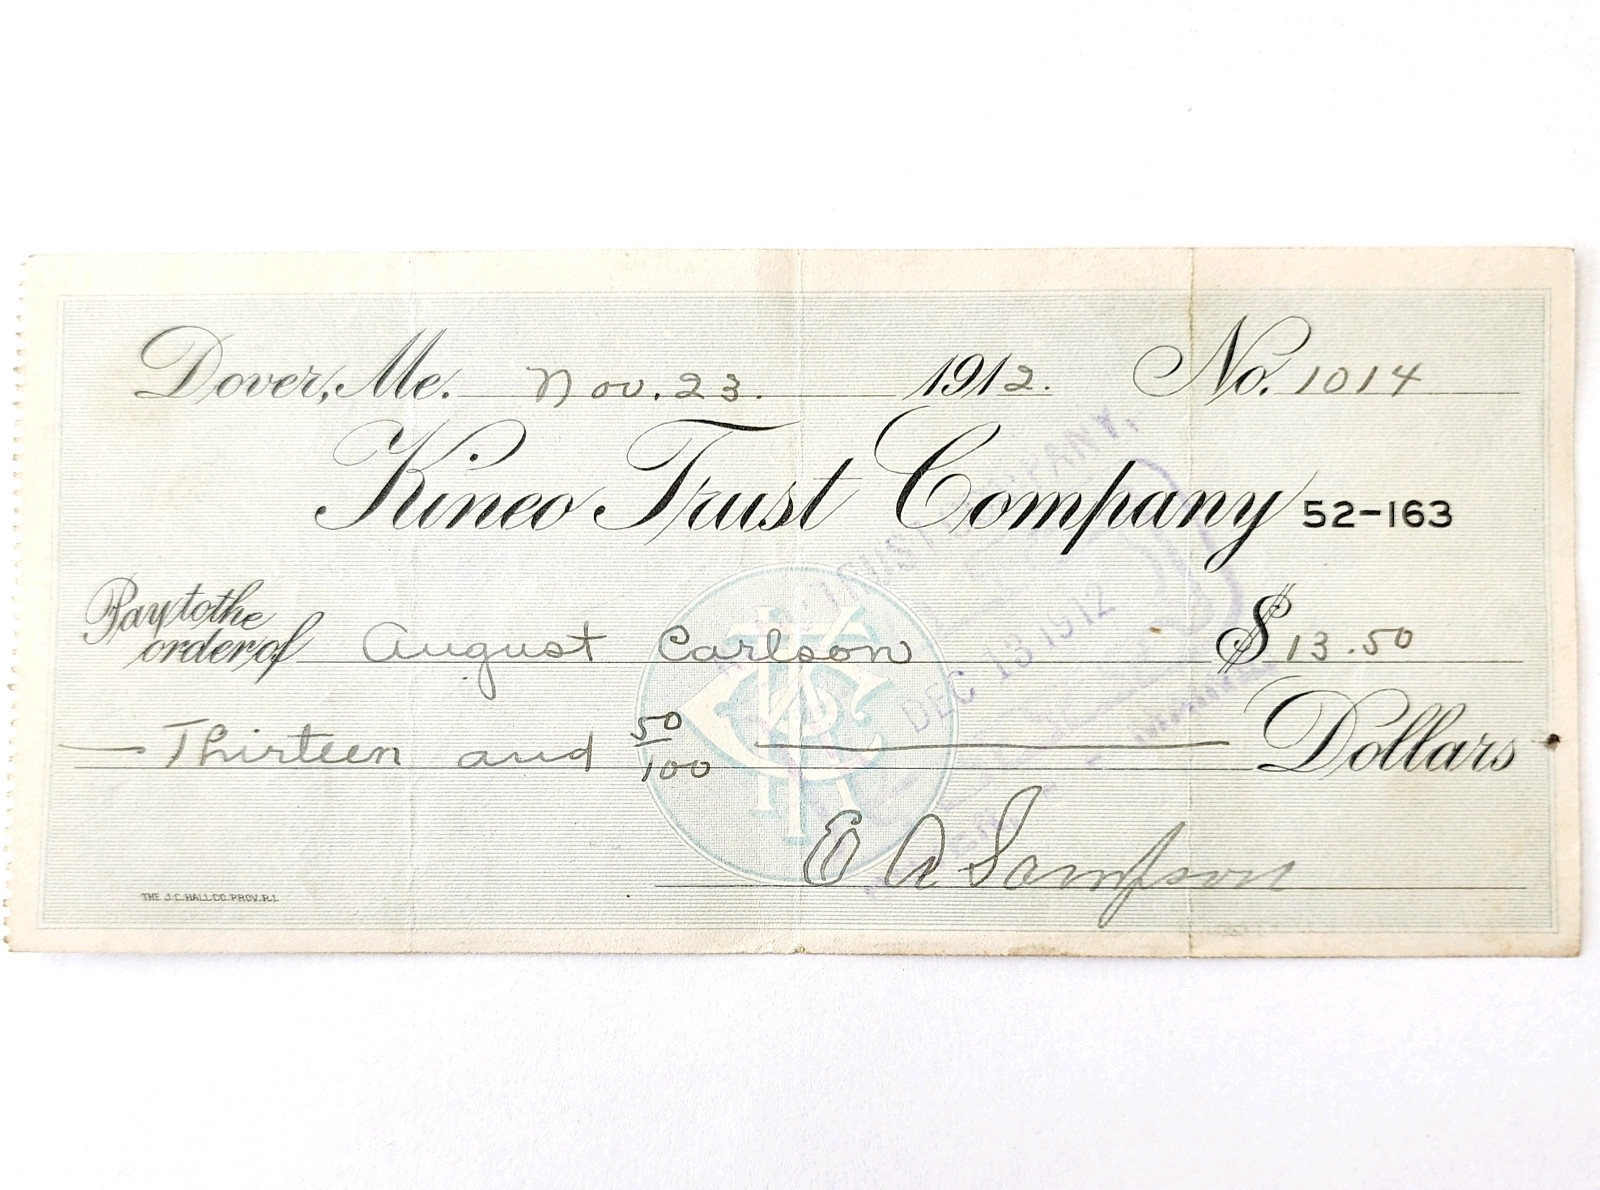 Dover, Me. Nov. 23. 1912. No. 1014
Kineo Trust Company 52-163
Pay to the
order of August Carlson $ 13.50
Thirteen and 50/100 Dollars
E A Sampson
THE J.C. HALL CO. PROV. R.I.
TRUST COMPANY,
DEC 13 1912
KTC